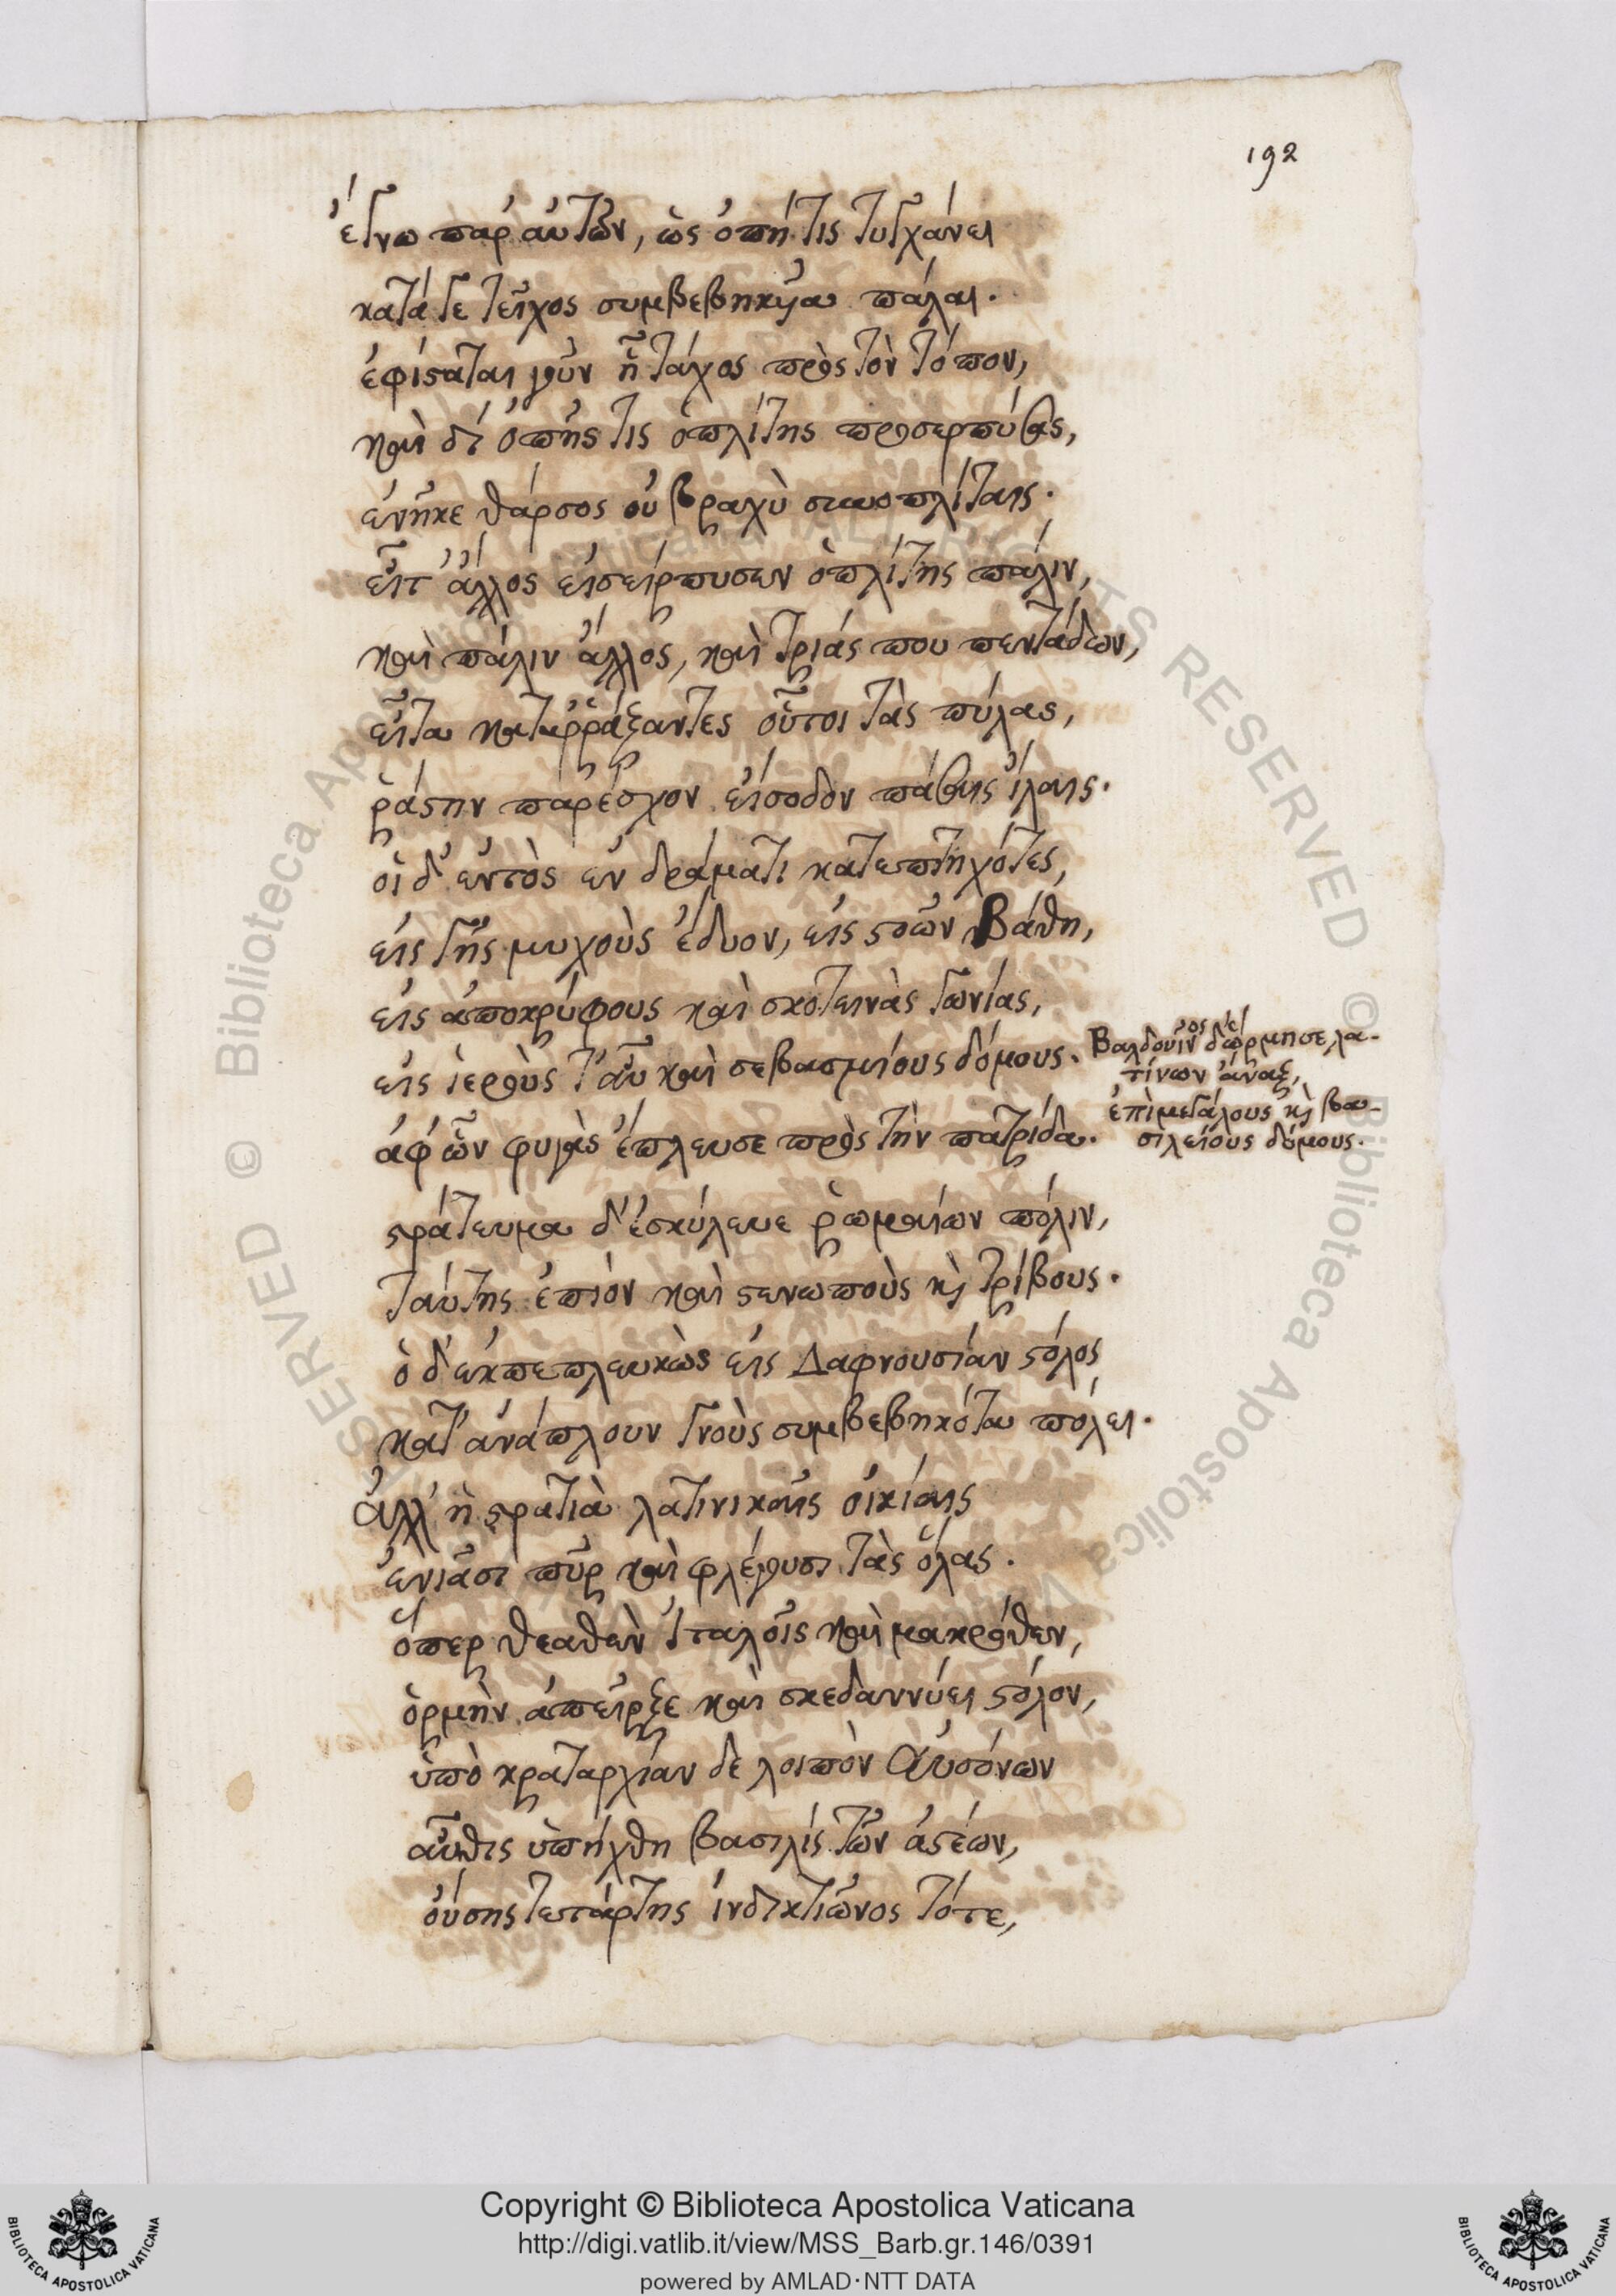 192
ἔγνω παρ' αὐτῶν, ὡς ὀπή τις τυγχάνει
κατά γε τεῖχος συμβεβηκυῖα πάλαι.
ἐφίσταται γοῦν ᾗ τάχος πρὸς τὸν τόπον,
καὶ δι' ὀπῆς τις ὁπλίτης προσερπύσας,
ἐνῆκε θάρσος οὐ βραχὺ συνοπλίταις.
εἶτ' ἄλλος εἰσείρπυσεν ὁπλίτης πάλιν,
καὶ πάλιν ἄλλος, καὶ τριάς που πεντάδων,
εἶτα καταῤῥάξαντες οὗτοι τὰς πύλας,
ῥάστην παρέσχον εἴσοδον πάσαις ἴλαις.
οἱ δ' ἐντὸς ἐν δράματι κατεπτηχότες,
εἰς γῆς μυχοὺς ἔδυον, εἰς στοῶν βάθη,
εἰς ἀποκρύφους καὶ σκοτεινὰς γωνίας,
εἰς ἱεροὺς τ' αὖ καὶ σεβασμίους δόμους.
Βαλδουῖνος δ' ἐφώρμησε, λα-
τίνων ἄναξ,
ἐπὶ μεγάλους κὶ βα-
σιλείους δόμους.
ἀφ' ὧν φυγὰς ἔπλευσε πρὸς τὴν πατρίδα.
στράτευμα δ' ἐσκύλευε ῥωμαίων πόλιν,
ταύτης ἐπιὸν καὶ στενωποὺς κὶ τρίβους.
ὁ δ' ἐκπεπλευκὼς εἰς Δαφνουσίαν στόλος
κατ' ἀνάπλουν γνοὺς συμβεβηκότα πόλει.
ἀλλ' ἡ στρατιὰ λατινικαῖς οἰκίαις
ἐνιᾶσι πῦρ καὶ φλέγουσι τὰς ὅλας.
ὅπερ θεαθὲν ἰταλοῖς καὶ μακρόθεν,
ὁρμὴν ἀπεῖρξε καὶ σκεδαννύει στόλον,
ὑπὸ κραταρχίαν δὲ λοιπὸν Αὐσόνων
αὖθις ὑπήχθη βασιλὶς τῶν ἀστέων,
οὔσης τετάρτης ἰνδικτιῶνος τότε,
Copyright © Biblioteca Apostolica Vaticana
http://digi.vatlib.it/view/MSS_Barb.gr.146/0391
powered by AMLAD·NTT DATA
BIBLIOTECA APOSTOLICA VATICANA
BIBLIOTECA APOSTOLICA VATICANA